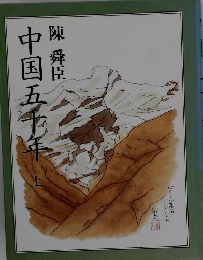 陳舜臣
中国五千年
上